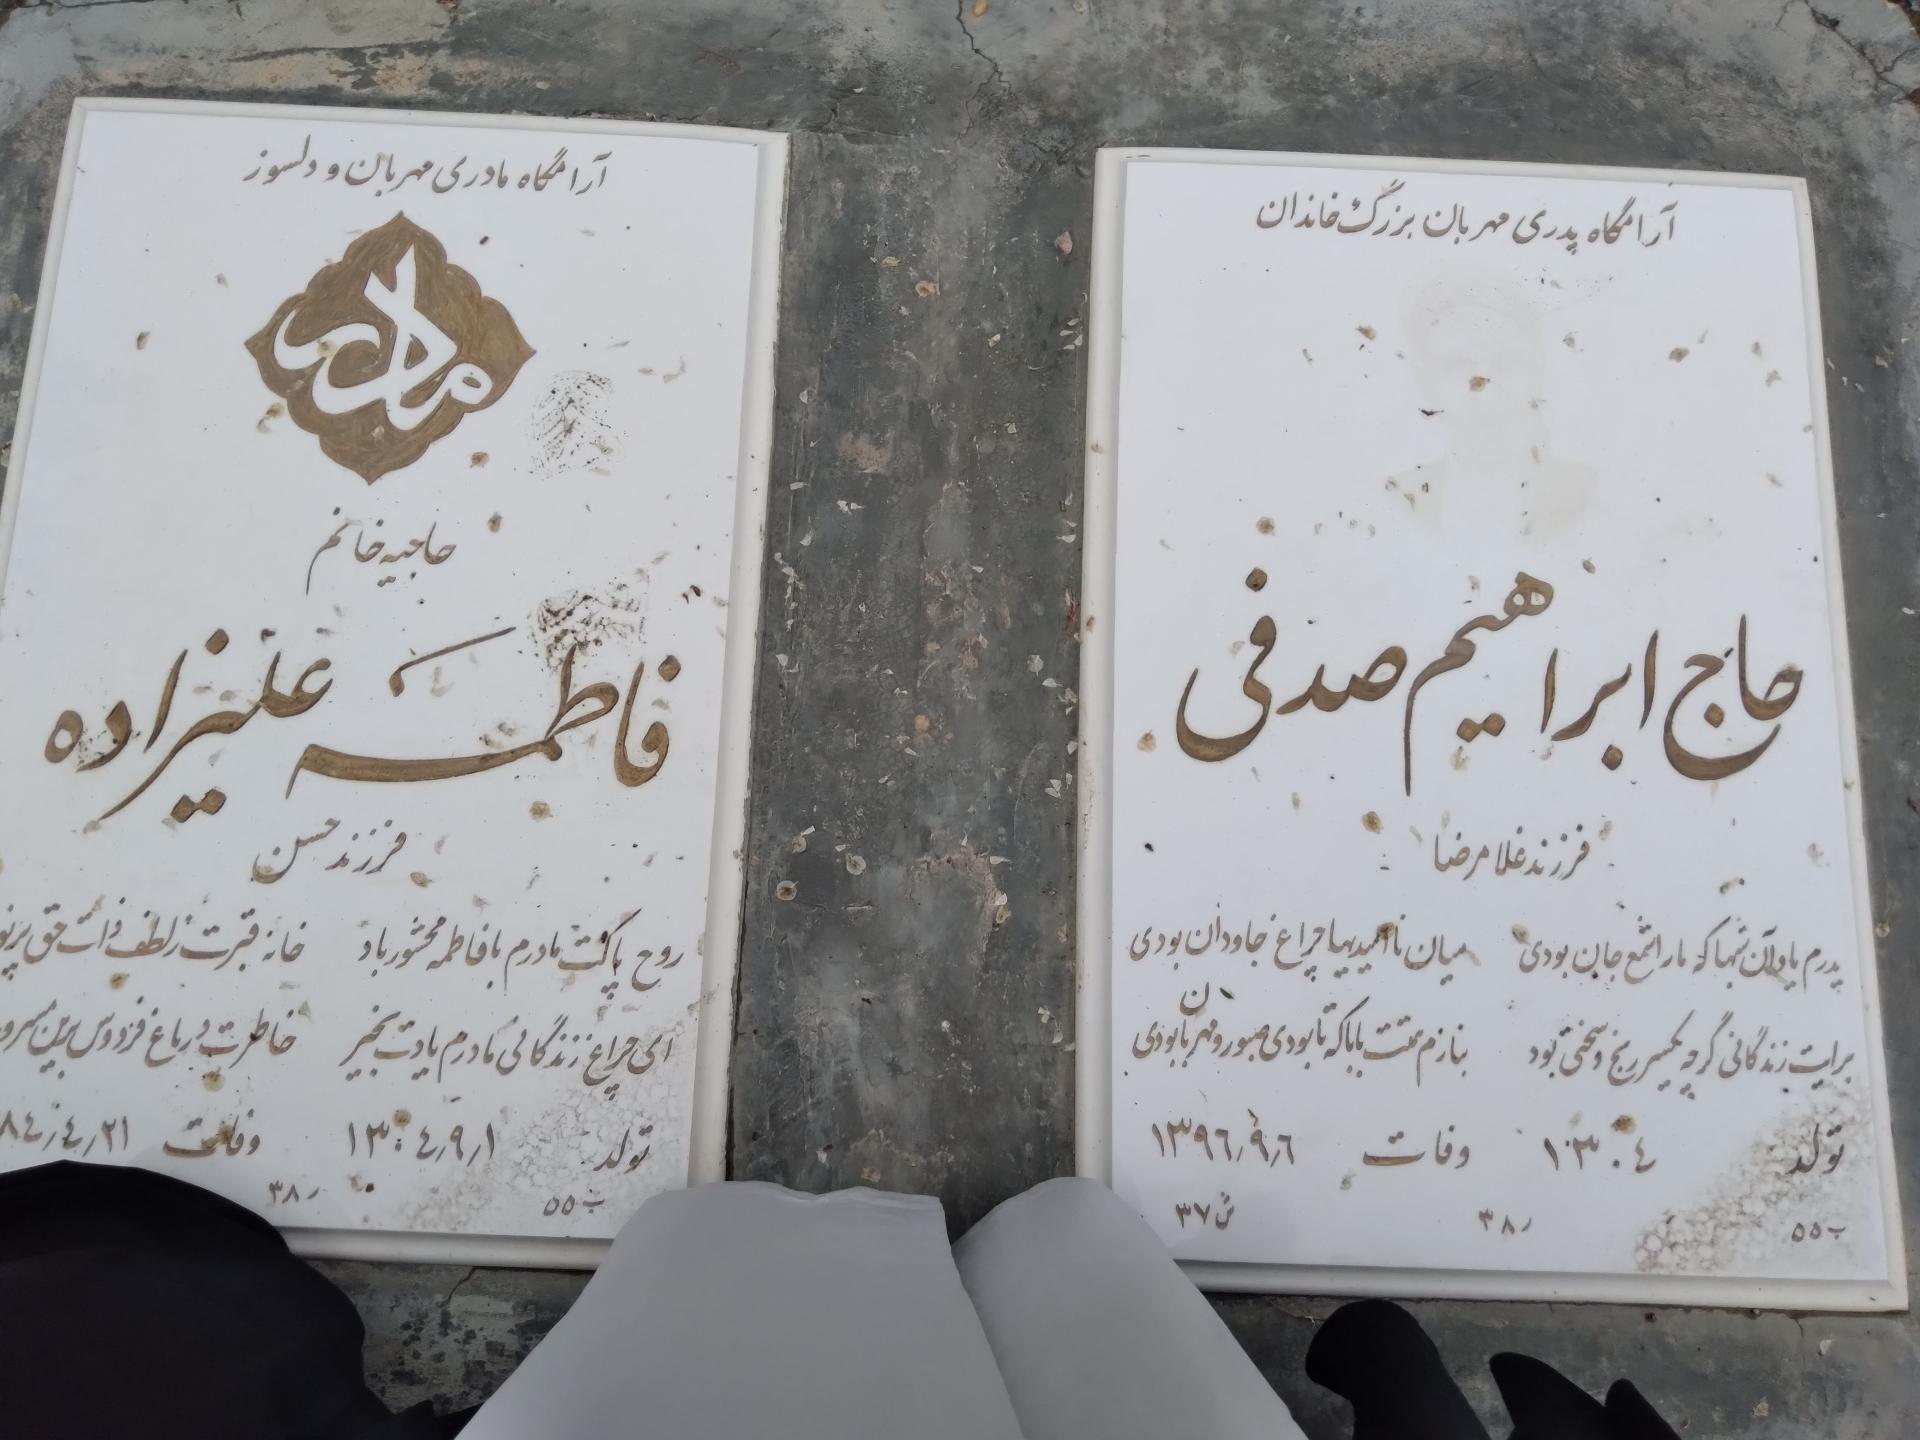 آرامگاه پدری مهربان بزرگ خاندان
حاج ابراهیم صدفی
فرزند غلامرضا
پدرم یاد آن شبها که ما را شمع جان بودی میان ناامیدیها چراغ جاودان بودی
برایت زندگانی گرچه یکسر رنج و سختی بود بنازم همتت بابا که تا بودی صبور و مهربان بودی
تولد ۱۳۰۴ وفات ۱۳۹۶٫۹٫۶
ب ۵۵ ر ۳۸ ش ۳۷
آرامگاه مادری مهربان و دلسوز
مادر
حاجیه خانم
فاطمه علیزاده
فرزند حسن
روح پاکت مادرم با فاطمه محشور باد خانه قبرت ز لطف ذات حق پر نو
ای چراغ زندگانی مادرم یادت بخیر خاطرت در باغ فردوس برین مسرو
تولد ۱۳۰۴٫۹٫۱ وفات ۸۴٫۴٫۲۱
ب ۵۵ ر ۳۸